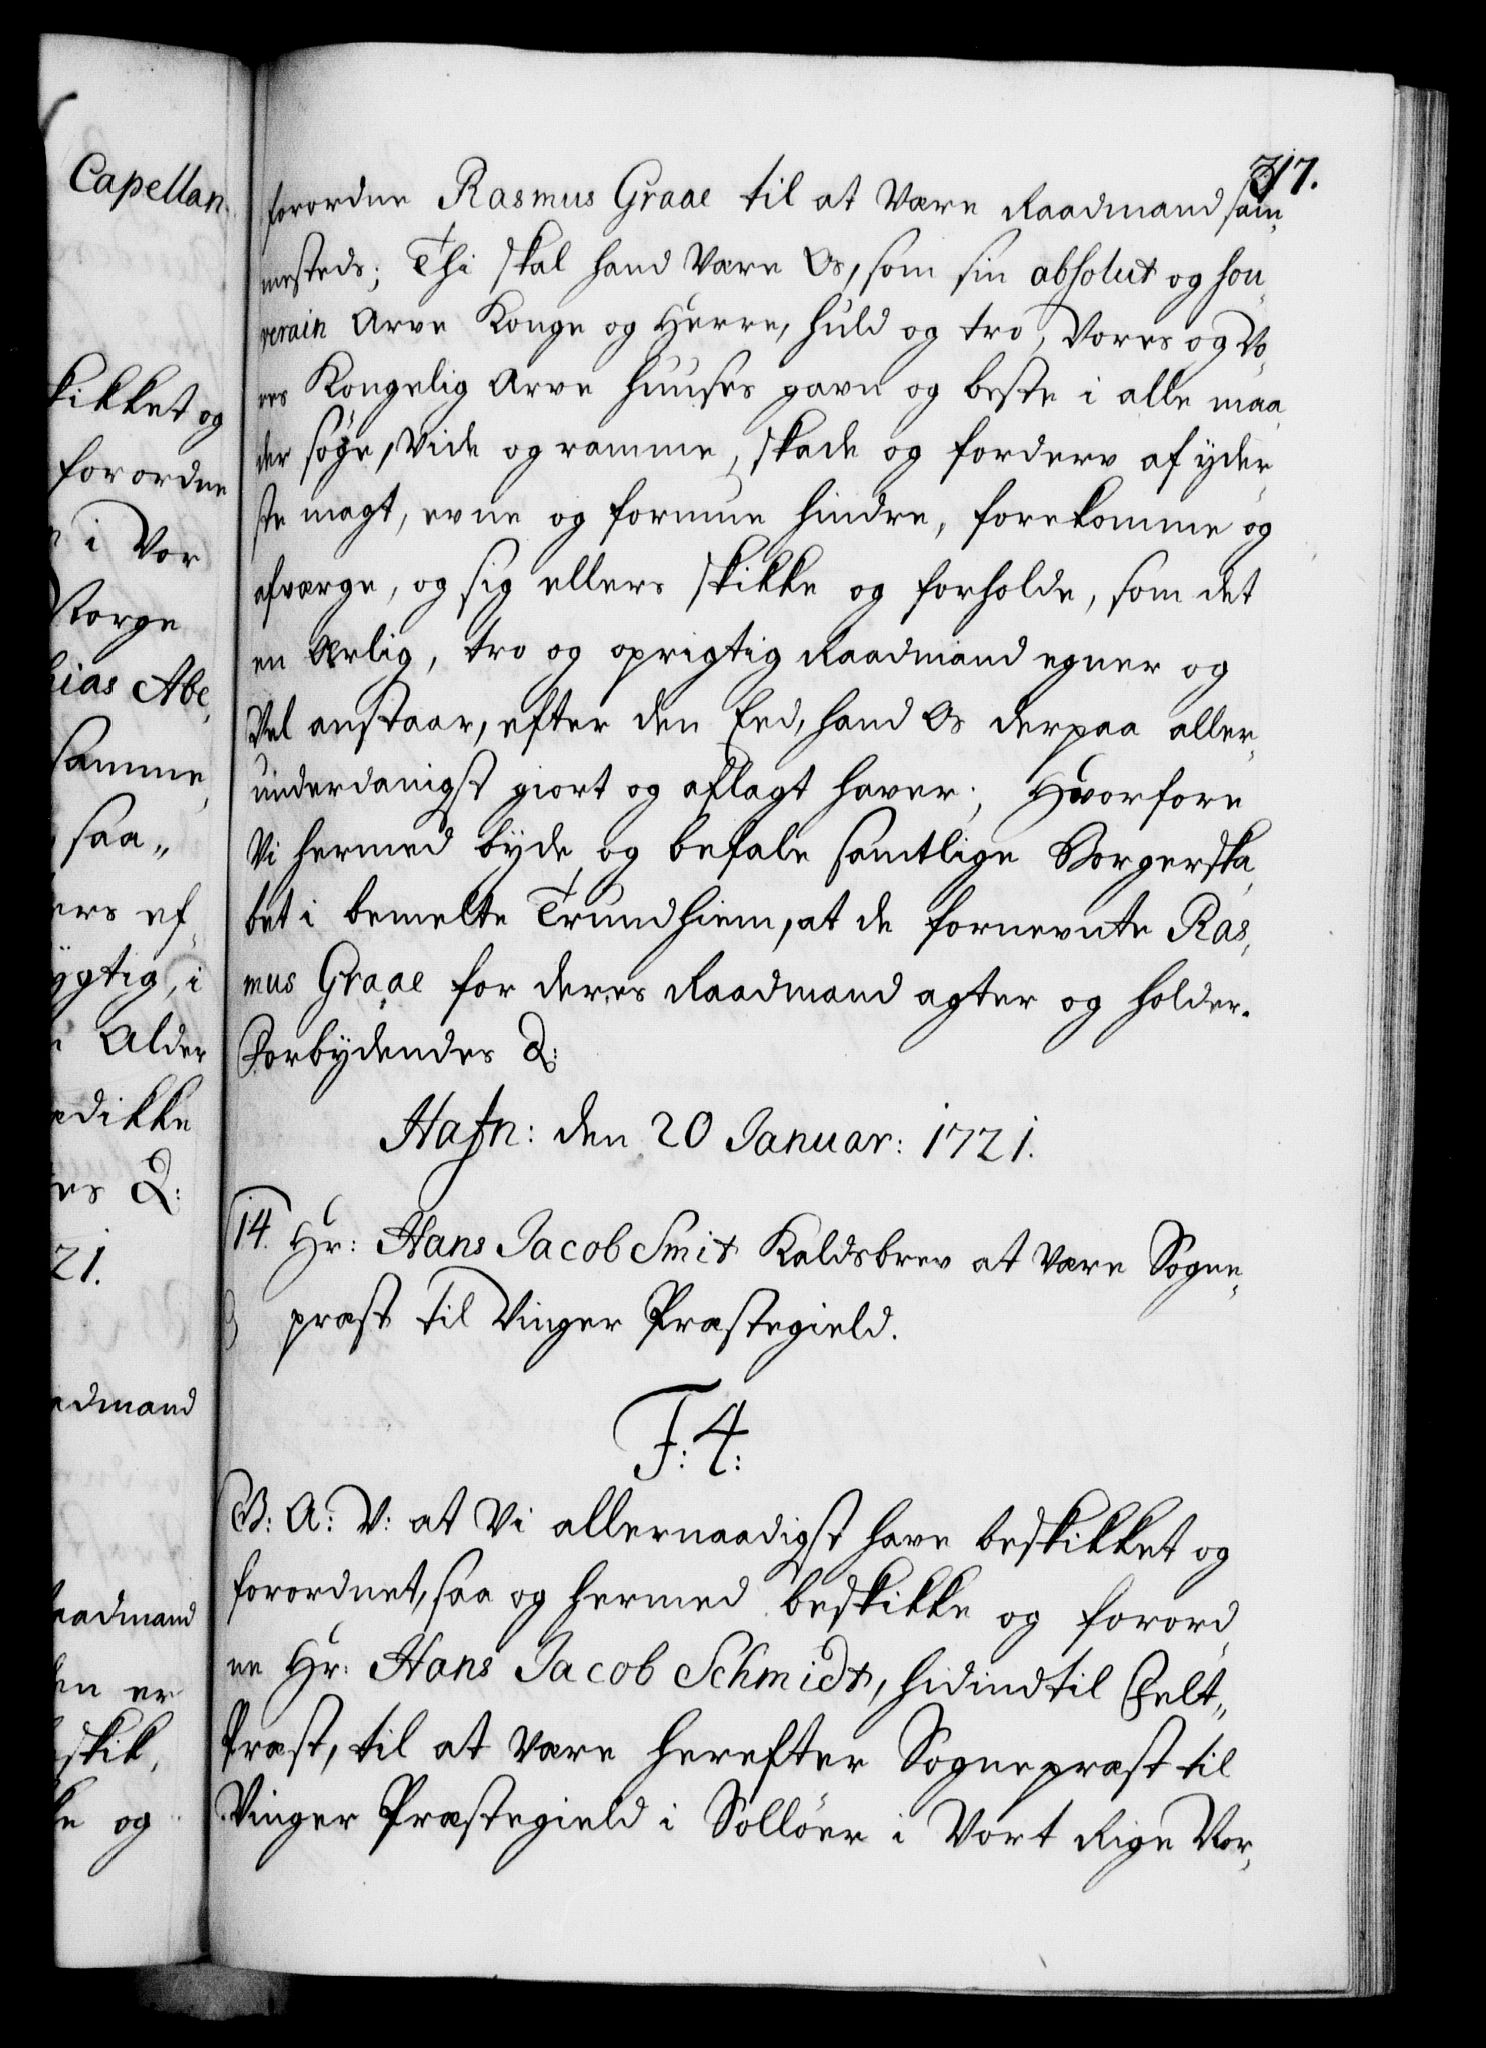 317.
forordne Rasmus Graae til at være Raadmand sam¬
mesteds; Thi skal hand være Os, som sin absolut og sou¬
verain Arve Konge og Herre, huld og tro, Vores og Vo¬
res Kongelig Arve Huuses gavn og beste i alle maa¬
der søge, vide og ramme, skade og forderv af yder¬
ste magt, evne og formue hindre, forekomme og
afværge, og sig ellers skikke og forholde, som det
en ærlig, tro og oprigtig Raadmand egner og
Vel anstaar, efter den Eed, hand Os derpaa aller¬
underdanigst giort og aflagt haver; Hvorfore
Vi hermed byde og befale samtlige Borgerska¬
bet i bemelte Trundhiem, at de fornevnte Ras¬
mus Graae for deres Raadmand agter og holder.
Forbydendes &:
Hafn: den 20 Januar: 1721.
14. Hr: Hans Jacob Smit Kaldsbrev at være Sogne¬
præst til Vinger Præstegield.
F: 4:
G: A: V: at Vi allernaadigst have beskikket og
forordnet, saa og hermed beskikke og forord¬
ne Hr: Hans Jacob Schmidt, hidindtil Felt¬
Præst, til at være herefter Sognepræst til
Vinger Præstegield i Solløer i Vort Rige Nor¬
Capellan
kikket og
forordne
i Vor
Norge
hias Abe¬
samme
saa¬
ers ef¬
ygtig, i
i Alder
edikke
es &:
21.
admand
aadmand
en er
skik¬
ke og